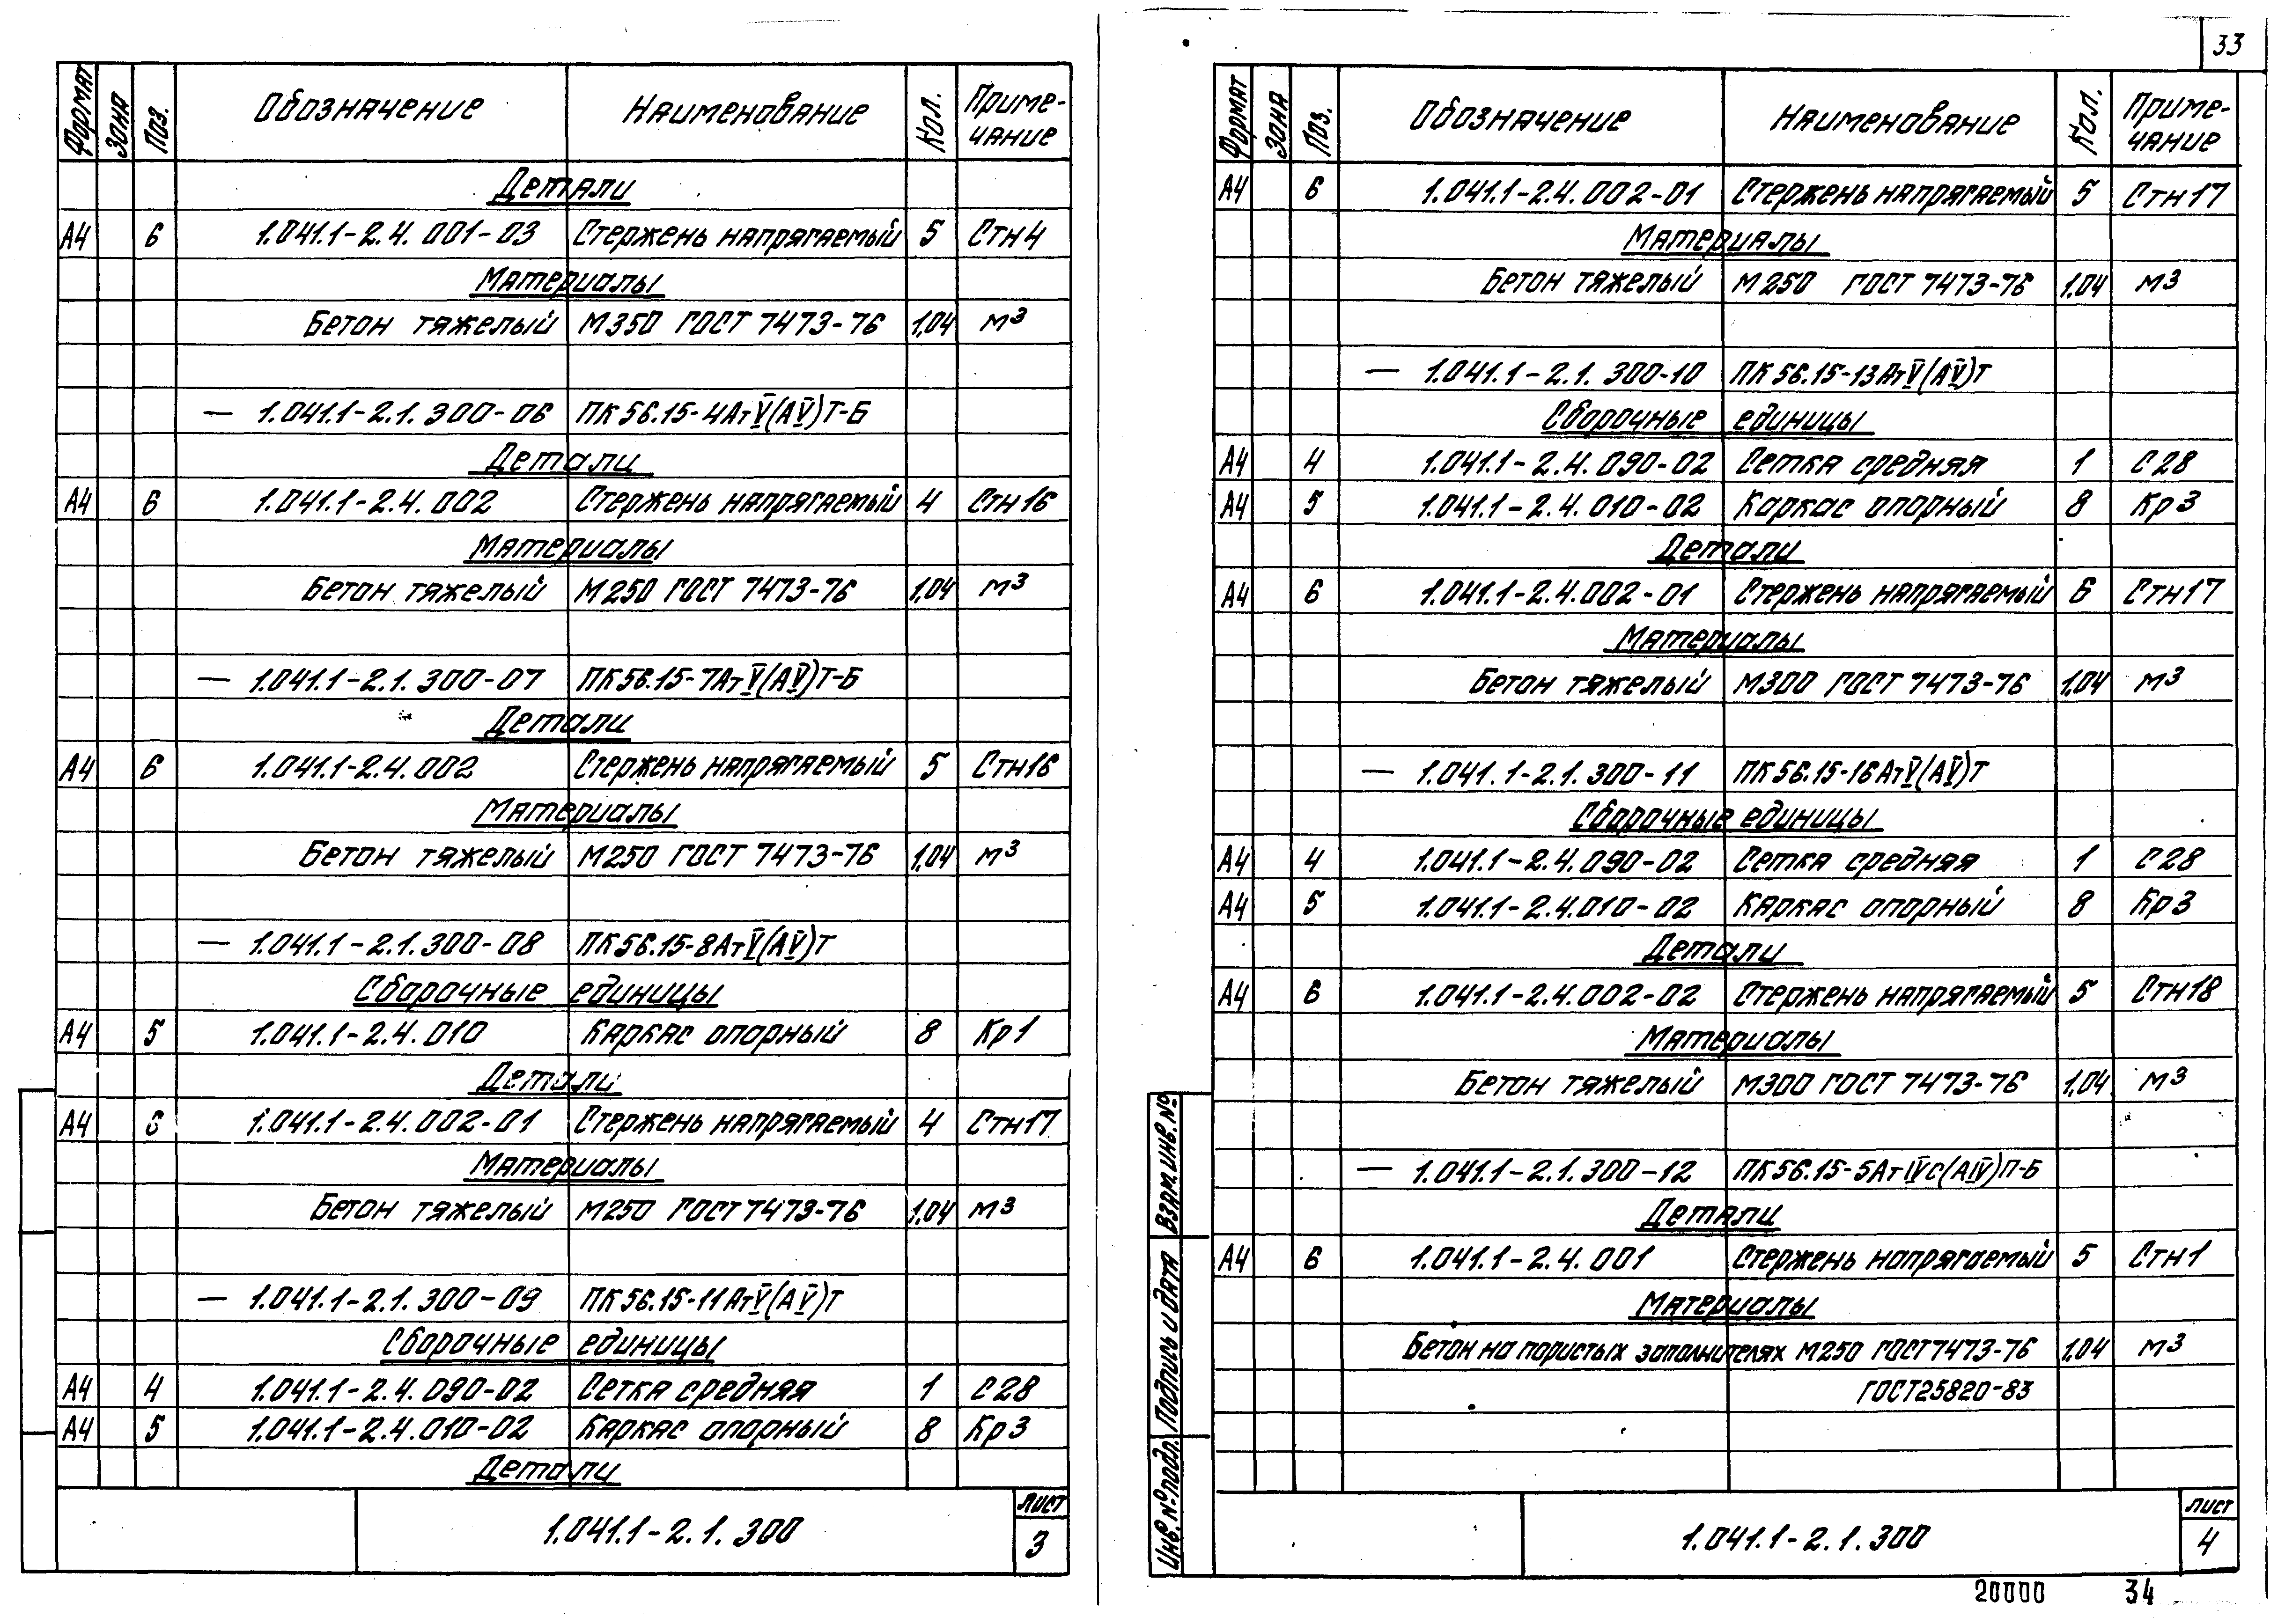 Формат Зона Поз. Обозначение Наименование Кол. Примечание
Детали
А4 6 1.041.1-2.4.001-03 Стержень напрягаемый 5 Стн4
Материалы
Бетон тяжелый М350 ГОСТ 7473-76 1,04 м3
— 1.041.1-2.1.300-06 ПК56.15-4АтV(АV)Т-Б
Детали
А4 6 1.041.1-2.4.002 Стержень напрягаемый 4 Стн16
Материалы
Бетон тяжелый М250 ГОСТ 7473-76 1,04 м3
— 1.041.1-2.1.300-07 ПК56.15-7АтV(АV)Т-Б
Детали
А4 6 1.041.1-2.4.002 Стержень напрягаемый 5 Стн16
Материалы
Бетон тяжелый М250 ГОСТ 7473-76 1,04 м3
— 1.041.1-2.1.300-08 ПК56.15-8АтV(АV)Т
Сборочные единицы
А4 5 1.041.1-2.4.010 Каркас опорный 8 Кр1
Детали
А4 6 1.041.1-2.4.002-01 Стержень напрягаемый 4 Стн17
Материалы
Бетон тяжелый М250 ГОСТ 7473-76 1,04 м3
— 1.041.1-2.1.300-09 ПК56.15-11АтV(АV)Т
Сборочные единицы
А4 4 1.041.1-2.4.090-02 Сетка средняя 1 С28
А4 5 1.041.1-2.4.010-02 Каркас опорный 8 Кр3
Детали
1.041.1-2.1.300
Лист
3
33
Формат Зона Поз. Обозначение Наименование Кол. Примечание
А4 6 1.041.1-2.4.002-01 Стержень напрягаемый 5 Стн17
Материалы
Бетон тяжелый М250 ГОСТ 7473-76 1,04 м3
— 1.041.1-2.1.300-10 ПК56.15-13АтV(АV)Т
Сборочные единицы
А4 4 1.041.1-2.4.090-02 Сетка средняя 1 С28
А4 5 1.041.1-2.4.010-02 Каркас опорный 8 Кр3
Детали
А4 6 1.041.1-2.4.002-01 Стержень напрягаемый 6 Стн17
Материалы
Бетон тяжелый М300 ГОСТ 7473-76 1,04 м3
— 1.041.1-2.1.300-11 ПК56.15-16АтV(АV)Т
Сборочные единицы
А4 4 1.041.1-2.4.090-02 Сетка средняя 1 С28
А4 5 1.041.1-2.4.010-02 Каркас опорный 8 Кр3
Детали
А4 6 1.041.1-2.4.002-02 Стержень напрягаемый 5 Стн18
Материалы
Бетон тяжелый М300 ГОСТ 7473-76 1,04 м3
— 1.041.1-2.1.300-12 ПК56.15-5АтIVС(АIV)П-Б
Детали
А4 6 1.041.1-2.4.001 Стержень напрягаемый 5 Стн1
Материалы
Бетон на пористых заполнителях М250 ГОСТ7473-76 1,04 м3
ГОСТ25820-83
Инв. № подл. Подпись и дата Взам. инв. №
1.041.1-2.1.300
Лист
4
20000 34